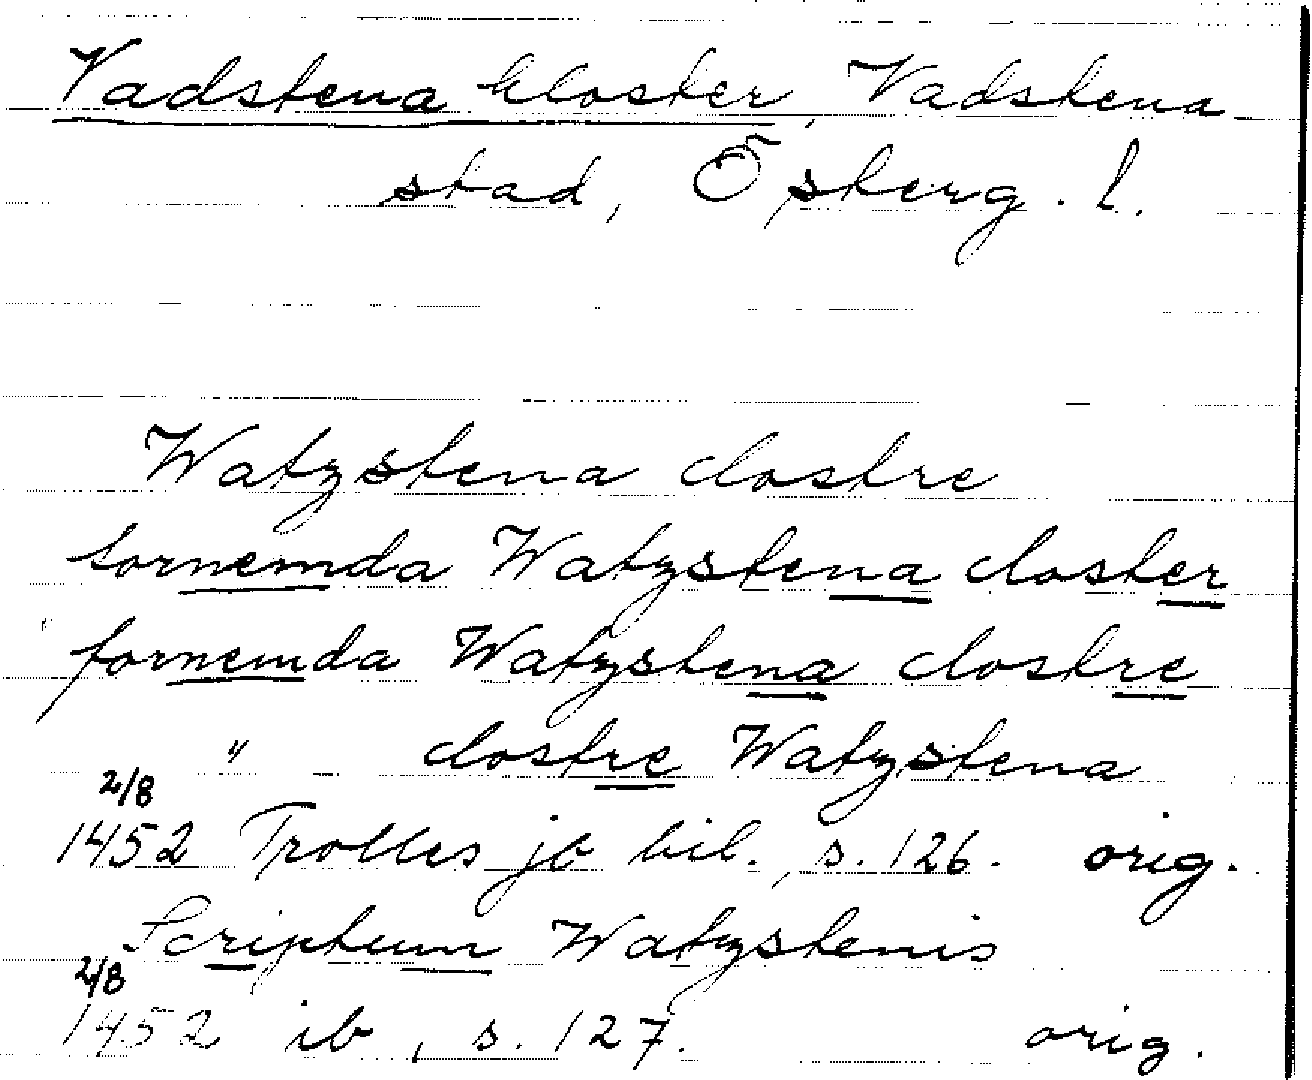 Vadstena kloster, Vadstena
stad, Österg. l.
Watzstena clostre
fornemda Watzstena closter
fornemda Watzstena clostre
" clostre Watzstena
2/8
1452 Trolles jb bil., s. 126. orig.
Scriptum Watzstenis
2/8
1452 ib, s. 127. orig.